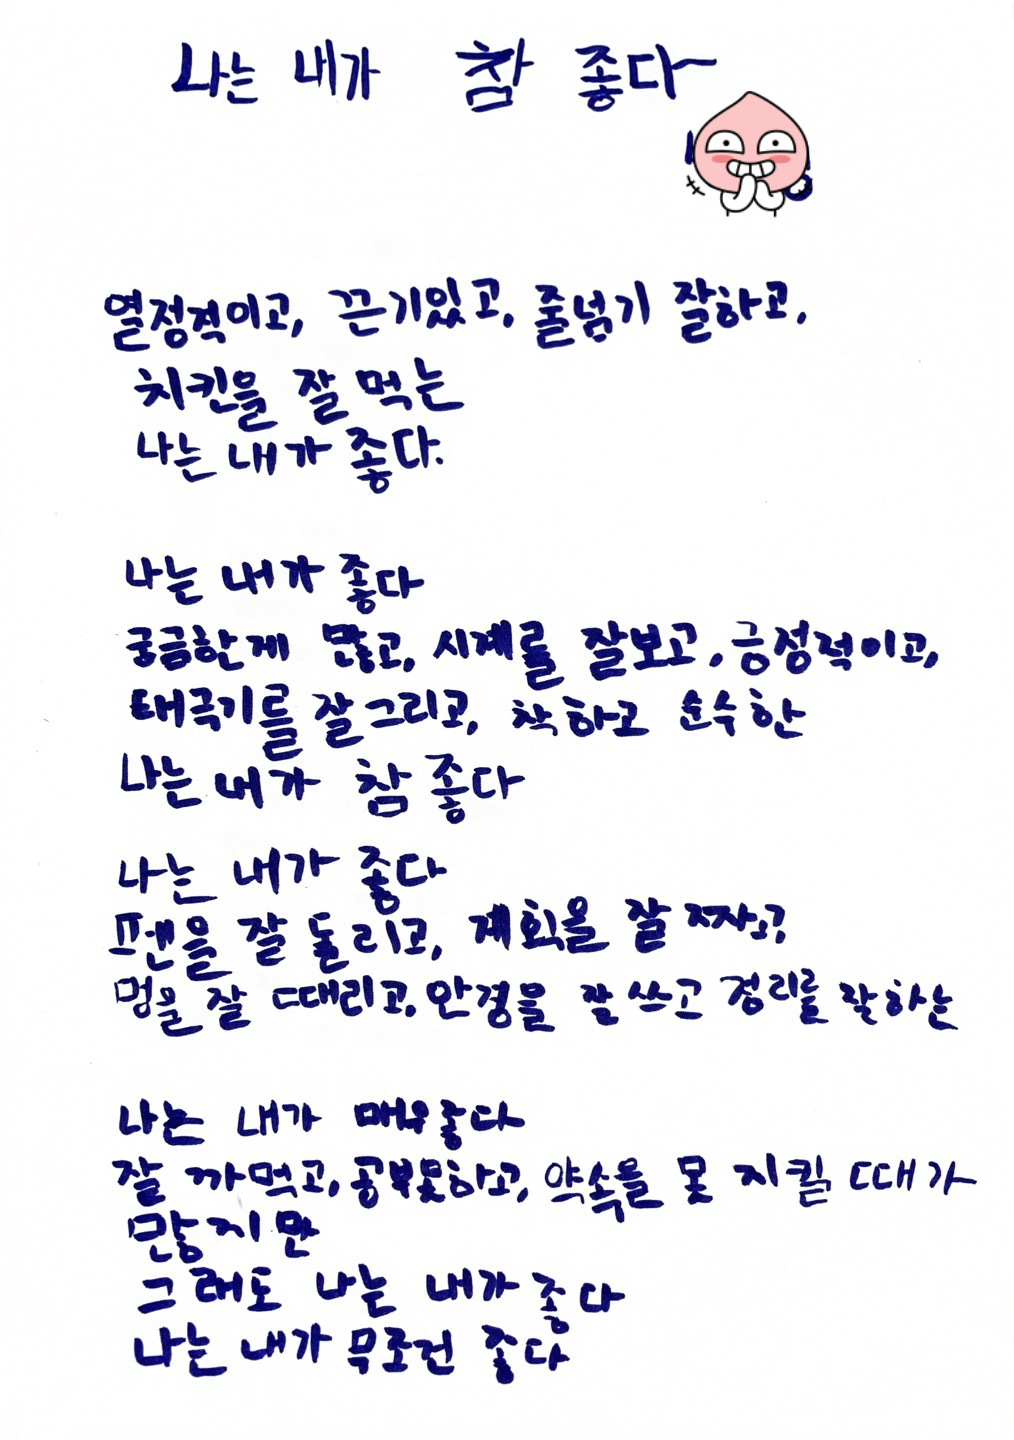 나는 내가 참 좋다~
열정적이고, 끈기있고, 줄넘기 잘하고,
치킨을 잘 먹는
나는 내가 좋다.
나는 내가 좋다
궁금한게 많고, 시계를 잘보고, 긍정적이고,
태극기를 잘 그리고, 착하고 순수한
나는 내가 참 좋다
나는 내가 좋다
펜을 잘 돌리고, 계획을 잘 짜고,
멍을 잘 때리고, 안경을 잘 쓰고 정리를 잘 하는
나는 내가 매우좋다
잘 까먹고, 공부못하고, 약속을 못 지킬 때가
많지만
그래도 나는 내가 좋다
나는 내가 무조건 좋다